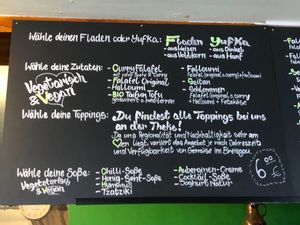 Wähle deinen Fladen oder Yufka: Fladen Yufka
•aus Weizen •aus Dinkel
•aus Vollkorn •aus Hanf
Wähle deine Zutaten:
Vegetarisch & Vegan
- Curry Falafel
mit roter Beete & Curry
- Falafel Original
- Halloumi
- BIO Taifun Tofu
- Falloumi
Falafel (original o. curry) & Halloumi
- Seitan
- Schlemmer
Falafel (original o. curry)
+ Halloumi + Fetakäse
Wähle deine Toppings: • Du findest alle Toppings bei uns
an der Theke!
Da uns Regionalität und Nachhaltigkeit sehr am
♡en liegt variiert das Angebot je nach Jahreszeit
und Verfügbarkeit von Gemüse im Breisgau.
6.00 €
Wähle deine Soße:
Vegetarisch & Vegan
- Chilli-Soße
- Honig-Senf-Soße
- Hummus
- Tzatziki
- Auberginen-Creme
- Cocktail-Soße
- Joghurt Natur